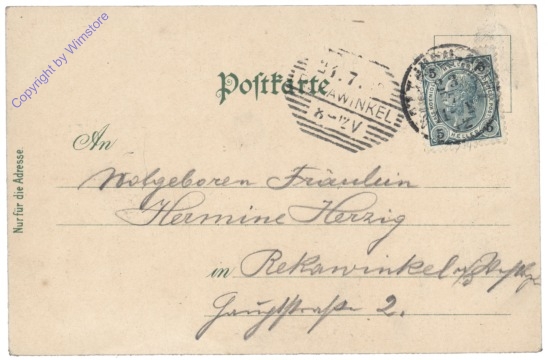 Copyright by Wimstore
Postkarte
24. 7.
KAWINKEL
8-½V
5
HELLER
5
Nur für die Adresse.
An
Wolgeboren Fräulein
Hermine Herzig
in Rekawinkel
Hauptstraße 2.